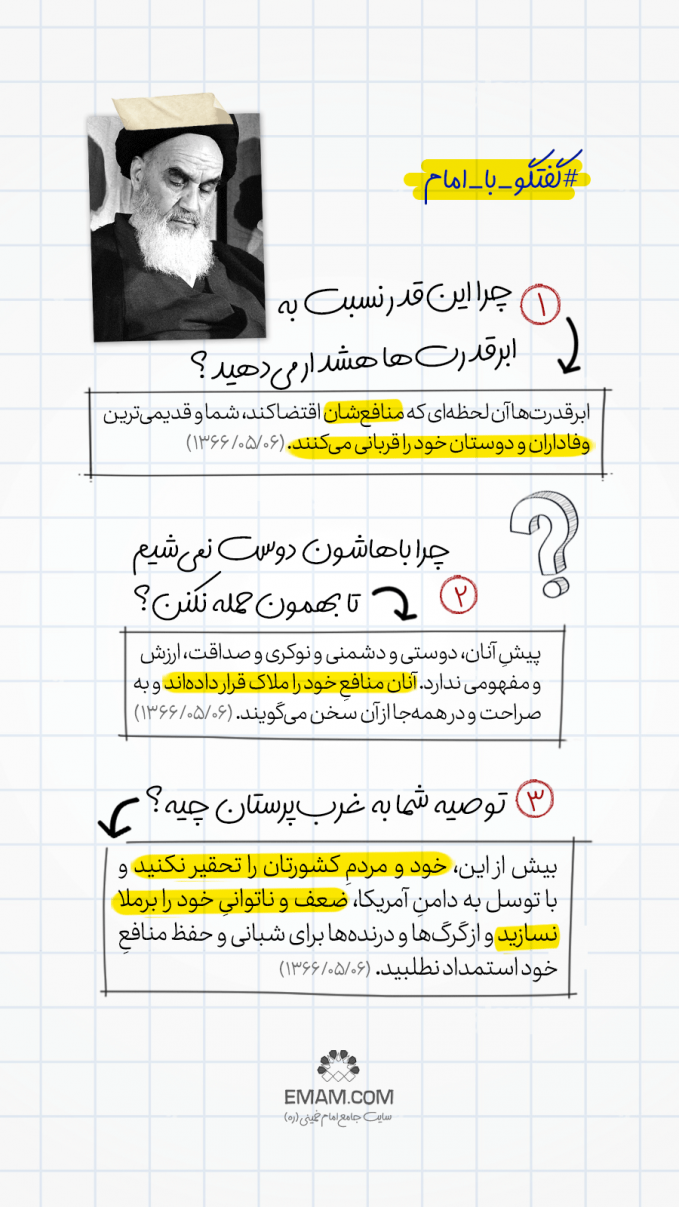 #گفتگو_با_امام
۱
چرا این قدر نسبت به
ابرقدرت ها هشدار می دهید؟
ابرقدرت‌ها آن لحظه‌ای که منافع‌شان اقتضا کند، شما و قدیمی‌ترین
وفاداران و دوستان خود را قربانی می‌کنند. (۱۳۶۶/۰۵/۰۶)
چرا باهاشون دوست نمی شیم
۲
تا بهمون حمله نکنن؟
پیشِ آنان، دوستی و دشمنی و نوکری و صداقت، ارزش
و مفهومی ندارد. آنان منافعِ خود را ملاک قرار داده‌اند و به
صراحت و در همه‌جا از آن سخن می‌گویند. (۱۳۶۶/۰۵/۰۶)
۳
توصیه شما به غرب‌پرستان چیه؟
بیش از این، خود و مردمِ کشورتان را تحقیر نکنید و
با توسل به دامنِ آمریکا، ضعف و ناتوانیِ خود را برملا
نسازید و از گرگ‌ها و درنده‌ها برای شبانی و حفظ منافعِ
خود استمداد نطلبید. (۱۳۶۶/۰۵/۰۶)
EMAM.COM
سایت جامع امام خمینی (ره)